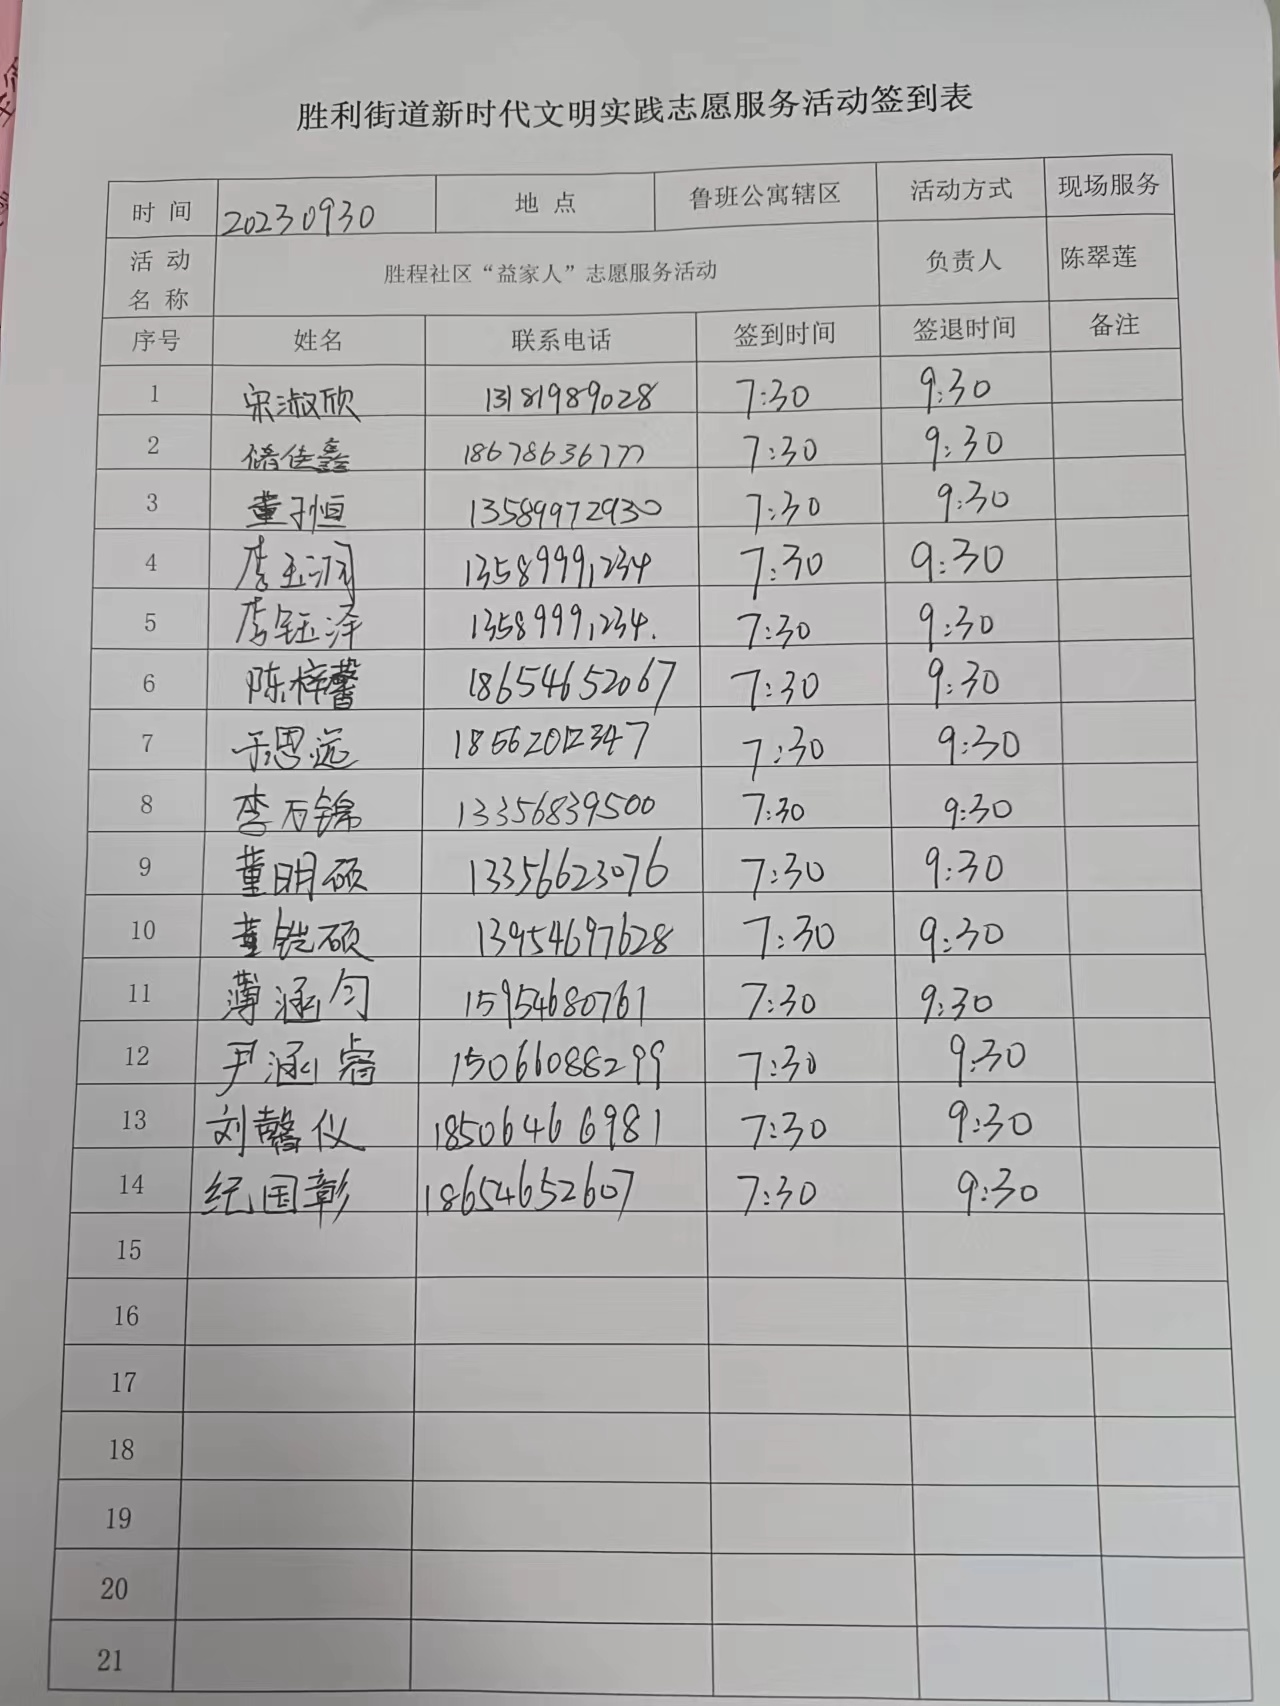 胜利街道新时代文明实践志愿服务活动签到表
时 间 20230930 地 点 鲁班公寓辖区 活动方式 现场服务
活 动 名 称 胜程社区“益家人”志愿服务活动 负责人 陈翠莲
序号 姓名 联系电话 签到时间 签退时间 备注
1 宋淑欣 13181989028 7:30 9:30
2 储佳鑫 18678636777 7:30 9:30
3 董子恒 13589972930 7:30 9:30
4 李玉润 13589991234 7:30 9:30
5 李钰泽 13589991234. 7:30 9:30
6 陈梓馨 18654652067 7:30 9:30
7 于思远 18562012347 7:30 9:30
8 李万锦 13356839500 7:30 9:30
9 董明硕 13356623076 7:30 9:30
10 董铠硕 13954697628 7:30 9:30
11 薄涵匀 15954680761 7:30 9:30
12 尹涵睿 15066088299 7:30 9:30
13 刘馨仪 18506466981 7:30 9:30
14 纪国彰 18654652607 7:30 9:30
15
16
17
18
19
20
21